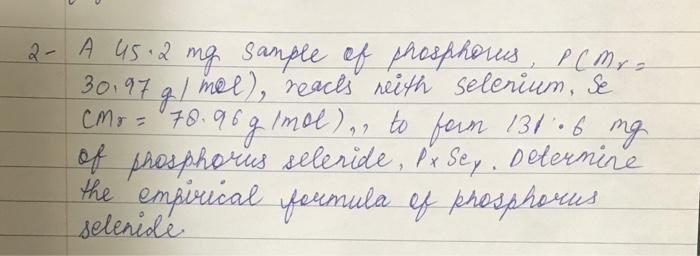 2- A 45.2 mg sample of phosphorus, P(Mr=
30.97 g/mol), reacts with selenium, Se
(Mr = 78.96 g/mol),, to form 131.6 mg
of phosphorus selenide, PxSey. Determine
the empirical formula of phosphorus
selenide.